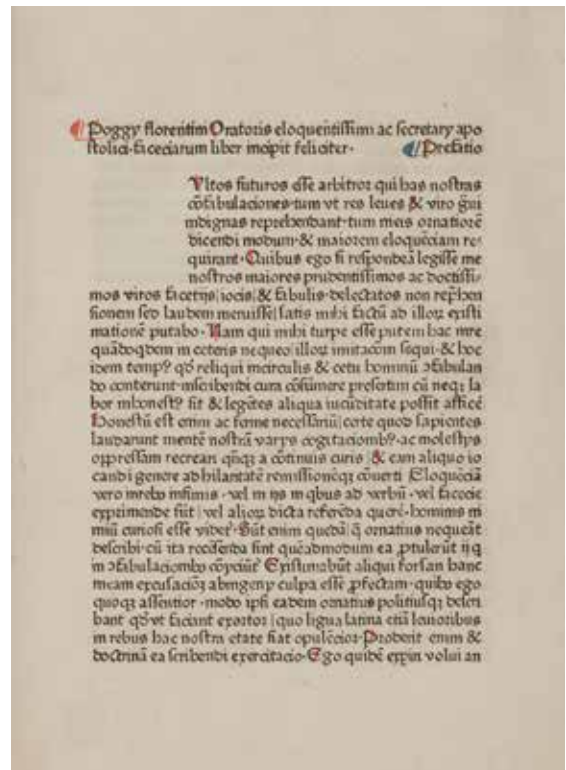 Poggy florentini Oratoris eloquentissimi ac secretary apo
stolici·faceciarum liber incipit feliciter· Prefatio
Vltos futuros esse arbitror qui has nostras
cōfabulaciones·tum vt res leues & viro gͣui
indignas reprehendant·tum meis ornatiorē
dicendi modum·& maiorem eloquēciam re-
quirant·Quibus ego si respondeā legisse me
nostros maiores prudentissimos ac doctissi-
mos viros facetijs|iocis|& fabulis·delectatos non rep̄hen
sionem sed laudem meruisse|satis mihi factū ad illoꝝ existi
mationē putabo·Nam qui mihi turpe esse putem hac in re
quādoqdem in ceteris nequeo illoꝝ imitacōm sequi·& hoc
idem tempꝰ qd̓ reliqui in circulis & cetu hominū ɔfabulan
do conterunt·in scribendi cura cōsumere presertim cū neqꝫ la
bor inhonestꝰ sit & legētes aliqua iucūditate possit afficē
Honestū est enim ac ferme necessariū|certe quod sapientes
laudarunt mentē nostrā varys cogitacionibꝰ·ac molestys
oppressam recreari qn̄qꝫ a cōtinuis curis|& eam aliquo io
candi genere ad hilaritatē remissionēqꝫ cōuerti Eloquēciā
vero in rebꝰ infimis·vel in ijs in qbus ad verbū·vel facecie
exprimende sūt|vel alioꝝ dicta referēda querē·hominis ni
miū curiosi esse videt᷑·Sūt enim quedā|q̄ ornatius nequeāt
describi·cū ita recēsenda sint quēadmodum ea ꝓtulerūt ij q
in ɔfabulacionibꝰ cōyciūt᷑ Existimabūt aliqui forsan hanc
meam excusacioꝫ ab ingeny culpa esse ꝓfectam·quibꝰ ego
quoqꝫ assentior·modo ipsi eadem ornatius politiusqꝫ descri
bant qd̓ vt faciant exortor|quo ligua latina etiā leuioribus
in rebus hac nostra etate fiat opulēcior·Proderit enim &
doctrinā ea scribendi exercitacio·Ego quidē expiri volui an